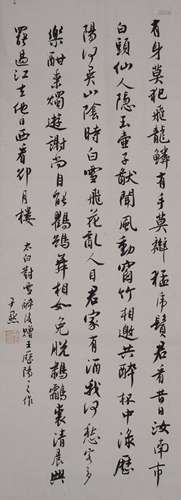 有身莫犯飛龍鱗有手莫辮猛虎鬚君看昔日汝南市
白頭仙人隱玉壺子猷聞風動窗竹相邀共醉杯中渌歷
陽何異山陰時白雪飛花亂人目君家有酒我何愁客多
樂酣秉燭遊謝尚自能鸜鵒舞相如免脫鷫鸘裘清晨興
罷過江去他日西看卻月樓
太白對雪醉後贈王歷陽之作
尹默